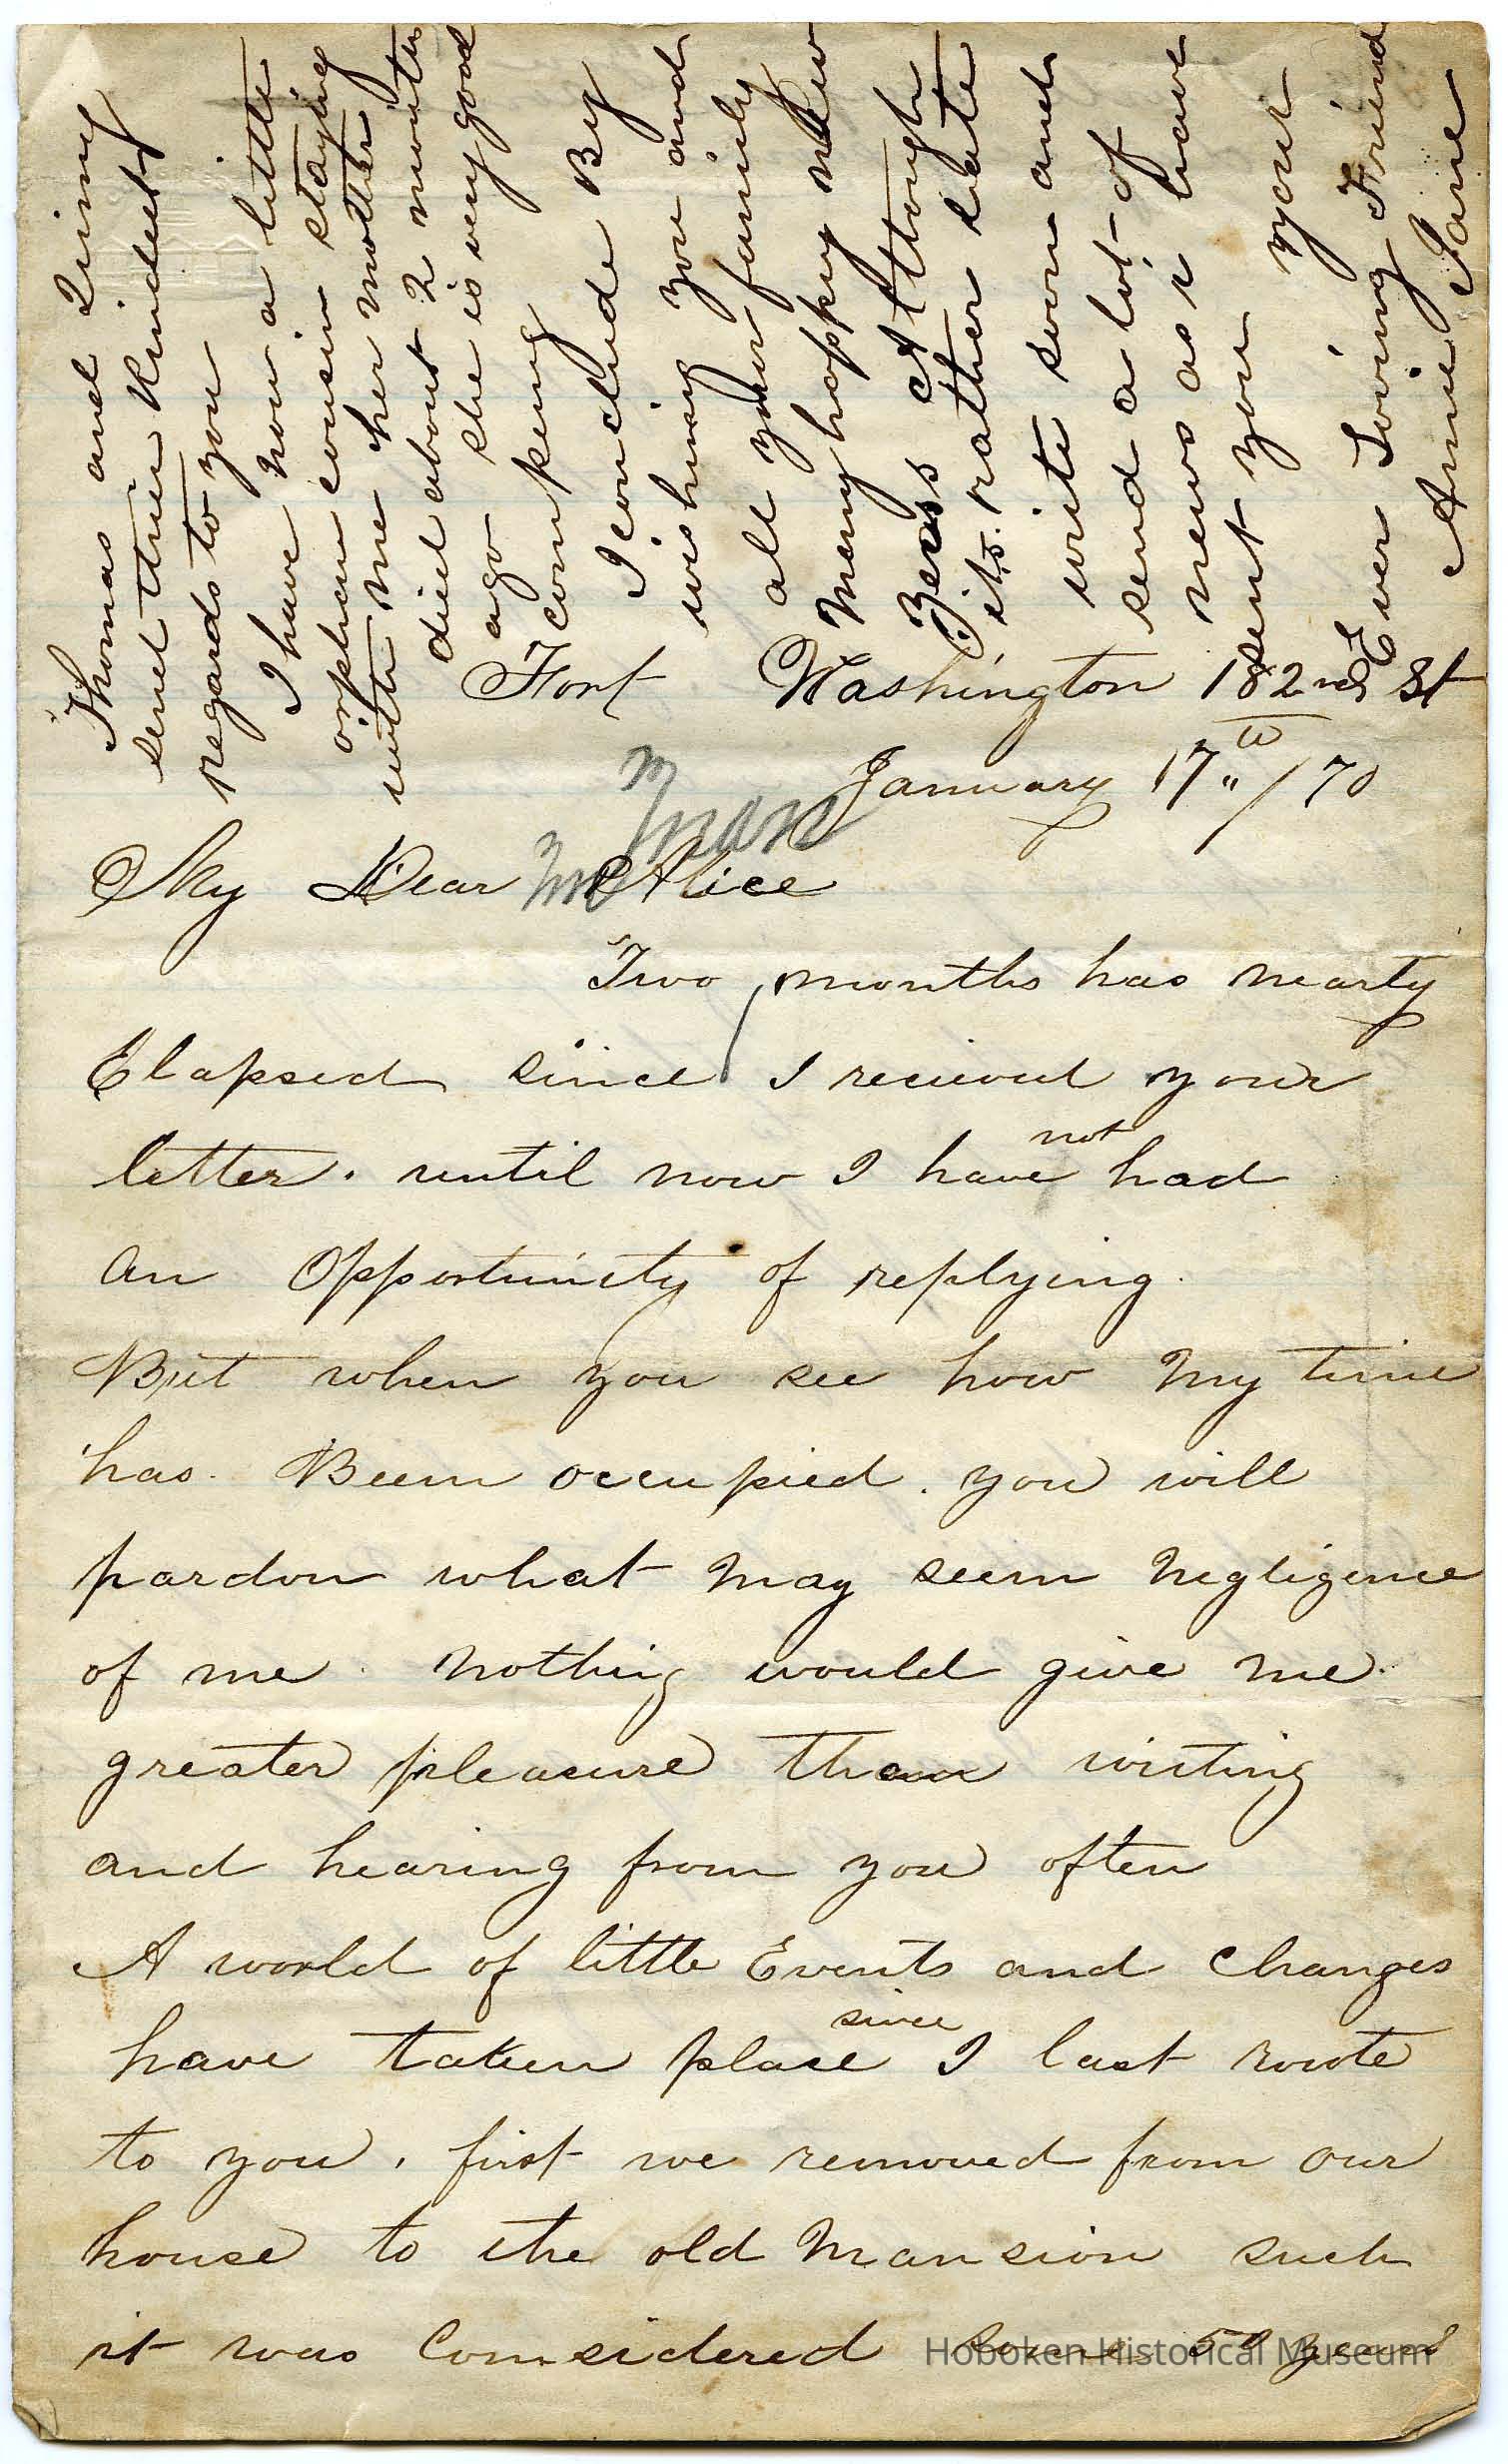 Fort Washington 182nd St
January 17th /70
My Dear Alice
Two months has nearly
Elapsed since I recieved your
letter. until now I have not had
an Opportunity of replying.
But when you see how My time
has. Been occupied. you will
pardon what May seem Negligence
of me. Nothing would give me.
greater pleasure than writing
and hearing from you often
A world of little Events and Changes
have taken place since I last wrote
to you. first we removed from our
house to the old Mansion such
it was Considered some 50 years
Thomas and
send their Kindest
regards to you
I have now a little
orphan cousin staying
with me her mother
died about 2 months
ago she is very good
company
I conclude By
wishing you and
all your family
Many happy New
Years Although
its rather late
write soon and
send a lot of
News as I have
sent you
your
Ever Loving Friend
Annie Lane
Hoboken Historical Museum